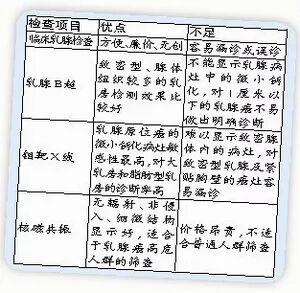 检查项目 优点 不足
临床乳腺检查 方便、廉价、无创 容易漏诊或误诊
乳腺B超
致密型、腺体
组织较多的乳
房检测效果比
较好
不能显示乳腺病
灶中的微小钙
化，对1厘米以
下的乳腺癌不易
做出明确诊断
钼靶X线
乳腺原位癌的
微小钙化病灶敏
感性最高，对大
乳房和脂肪型乳
房的诊断率高
难以显示致密腺
体内的病灶，对
致密型乳腺及紧
贴胸壁的癌灶容
易漏诊
核磁共振
无辐射、非侵
入、细微结构
显示好，适合
于乳腺癌高危
人群的筛查
价格昂贵，不适
合普通人群筛查